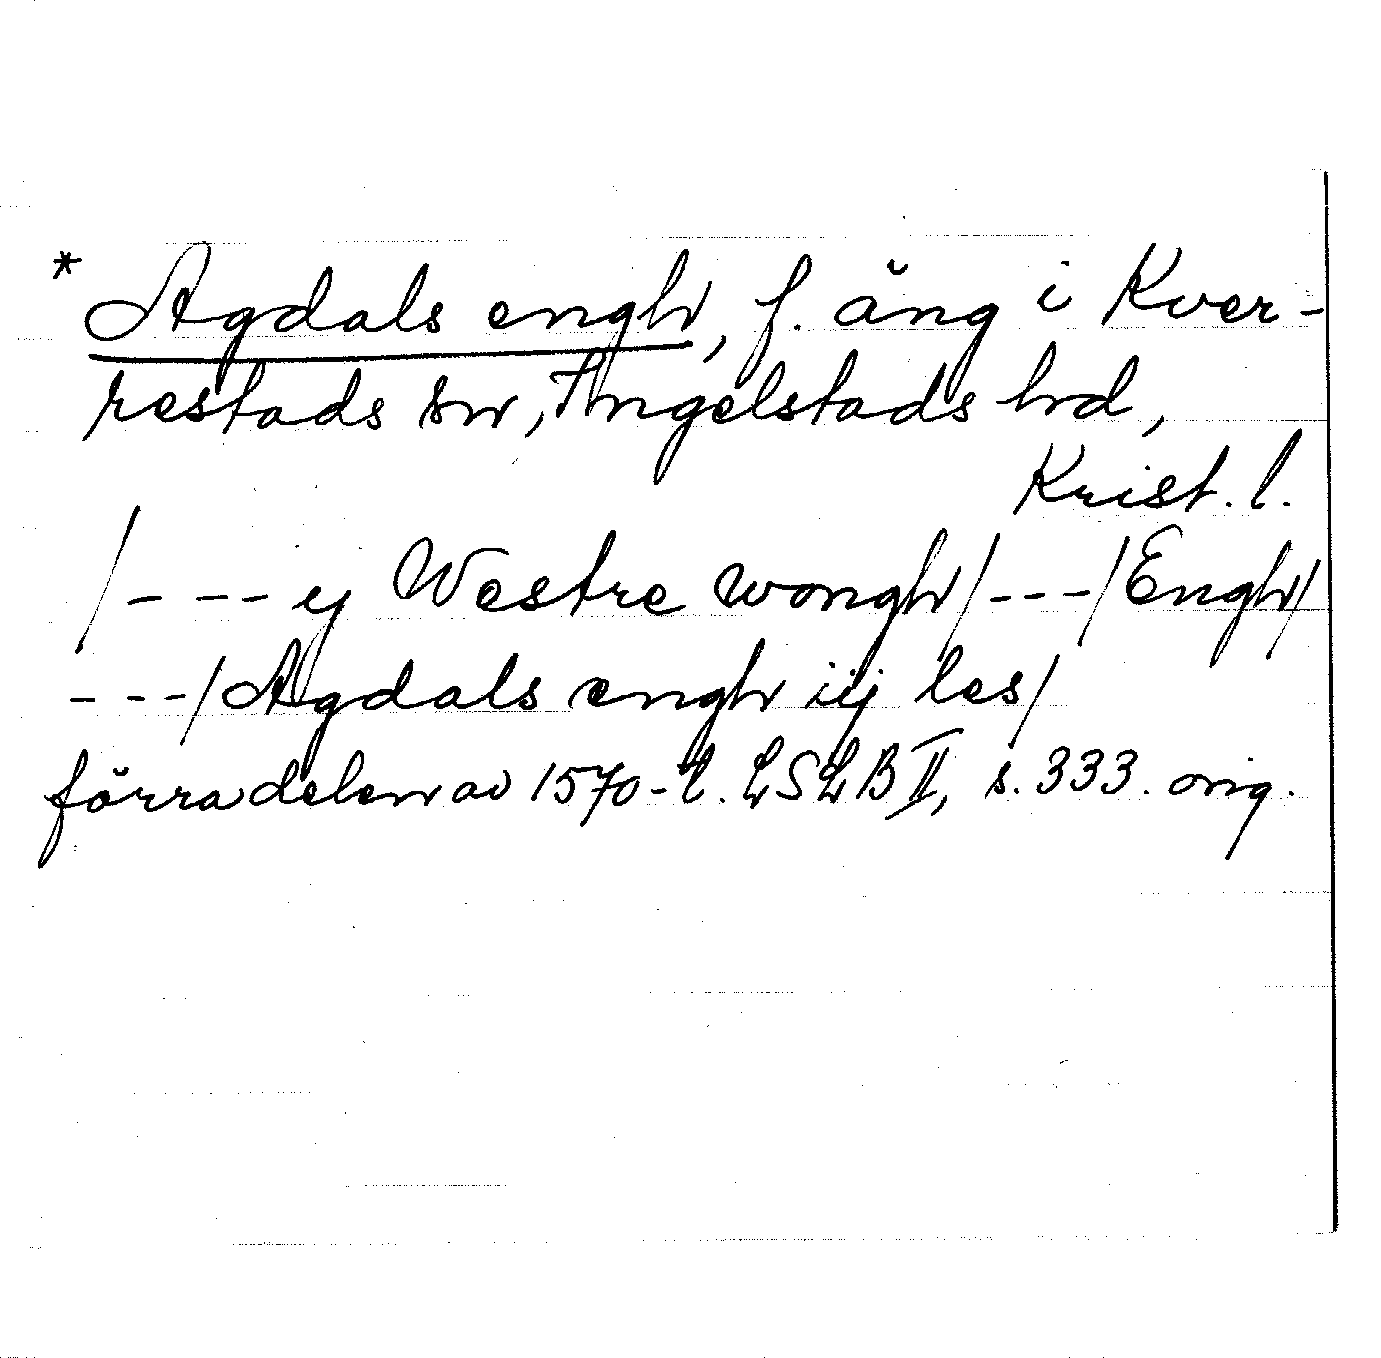 * Agdals engh, f. äng i Kver-
restads sn, Ingelstads hrd,
Krist. l.
/--- y Westre wongh/---/Engh/
---/Agdals engh iij les/
förra delen av 1570-t. LSLB II, s. 333. orig.